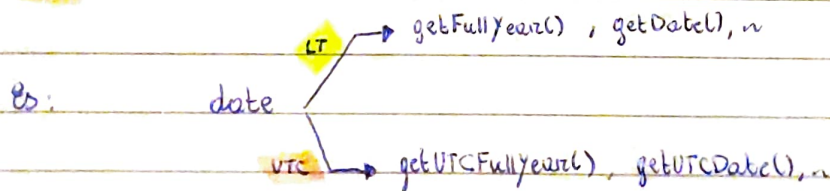 LT getFullYear() , getDate(), ~
Es: date
UTC getUTCFullYear() , getUTCDate(), ~